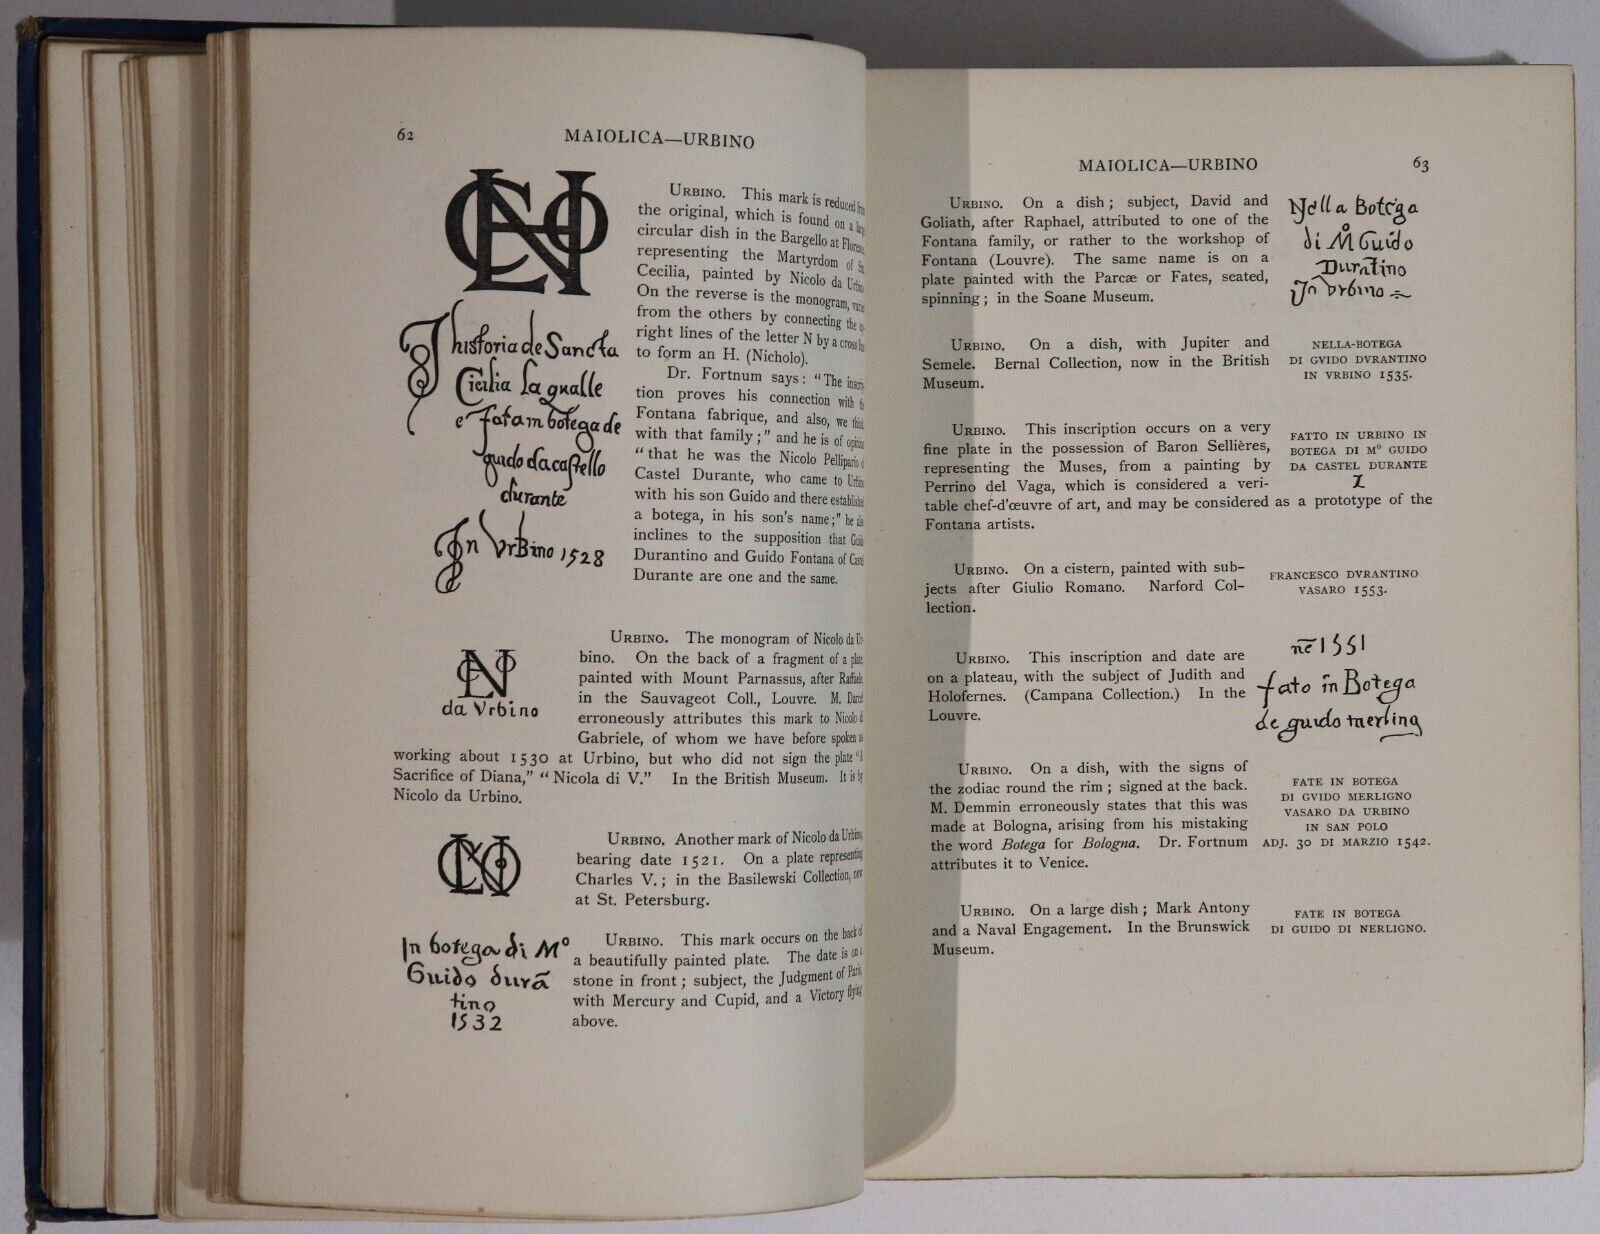 62
MAIOLICA—URBINO
URBINO. This mark is reduced from
the original, which is found on a large
circular dish in the Bargello at Florence,
representing the Martyrdom of
Cecilia, painted by Nicolo da Urbino
On the reverse is the monogram,
from the others by connecting the up-
right lines of the letter N by a cross line
to form an H. (Nicholo).
Dr. Fortnum says: "The inscrip-
tion proves his connection with the
Fontana fabrique, and also, we think
with that family;" and he is of opinion
"that he was the Nicolo Pellipario of
Castel Durante, who came to Urbino
with his son Guido and there established
a botega, in his son's name;" he also
inclines to the supposition that Guido
Durantino and Guido Fontana of Castel
Durante are one and the same.
historia de Sancta
Cicilia la qualle
e fata in botega de
guido da castello
durante
In Urbino 1528
URBINO. The monogram of Nicolo da Ur-
bino. On the back of a fragment of a plate
painted with Mount Parnassus, after Raffaele,
in the Sauvageot Coll., Louvre. M. Darcel
erroneously attributes this mark to Nicolo di
Gabriele, of whom we have before spoken as
working about 1530 at Urbino, but who did not sign the plate "A
Sacrifice of Diana," "Nicola di V." In the British Museum. It is by
Nicolo da Urbino.
da Vrbino
URBINO. Another mark of Nicolo da Urbino,
bearing date 1521. On a plate representing
Charles V.; in the Basilewski Collection, now
at St. Petersburg.
URBINO. This mark occurs on the back of
a beautifully painted plate. The date is on a
stone in front; subject, the Judgment of Paris,
with Mercury and Cupid, and a Victory flying
above.
In botega di Mº
Guido durā
tino
1532
MAIOLICA—URBINO
63
URBINO. On a dish; subject, David and
Goliath, after Raphael, attributed to one of the
Fontana family, or rather to the workshop of
Fontana (Louvre). The same name is on a
plate painted with the Parcæ or Fates, seated,
spinning; in the Soane Museum.
Nella Botega
di Mº Guido
Durātino
In Vrbino
URBINO. On a dish, with Jupiter and
Semele. Bernal Collection, now in the British
Museum.
NELLA-BOTEGA
DI GVIDO DVRANTINO
IN VRBINO 1535.
URBINO. This inscription occurs on a very
fine plate in the possession of Baron Sellières,
representing the Muses, from a painting by
Perrino del Vaga, which is considered a veri-
table chef-d'œuvre of art, and may be considered as a prototype of the
Fontana artists.
FATTO IN URBINO IN
BOTEGA DI Mº GUIDO
DA CASTEL DURANTE
URBINO. On a cistern, painted with sub-
jects after Giulio Romano. Narford Col-
lection.
FRANCESCO DVRANTINO
VASARO 1553.
URBINO. This inscription and date are
on a plateau, with the subject of Judith and
Holofernes. (Campana Collection.) In the
Louvre.
nē 1551
fato in Botega
de guido merlino
URBINO. On a dish, with the signs of
the zodiac round the rim; signed at the back.
M. Demmin erroneously states that this was
made at Bologna, arising from his mistaking
the word Botega for Bologna. Dr. Fortnum
attributes it to Venice.
FATE IN BOTEGA
DI GVIDO MERLIGNO
VASARO DA URBINO
IN SAN POLO
ADJ. 30 DI MARZIO 1542.
URBINO. On a large dish; Mark Antony
and a Naval Engagement. In the Brunswick
Museum.
FATE IN BOTEGA
DI GUIDO DI NERLIGNO.